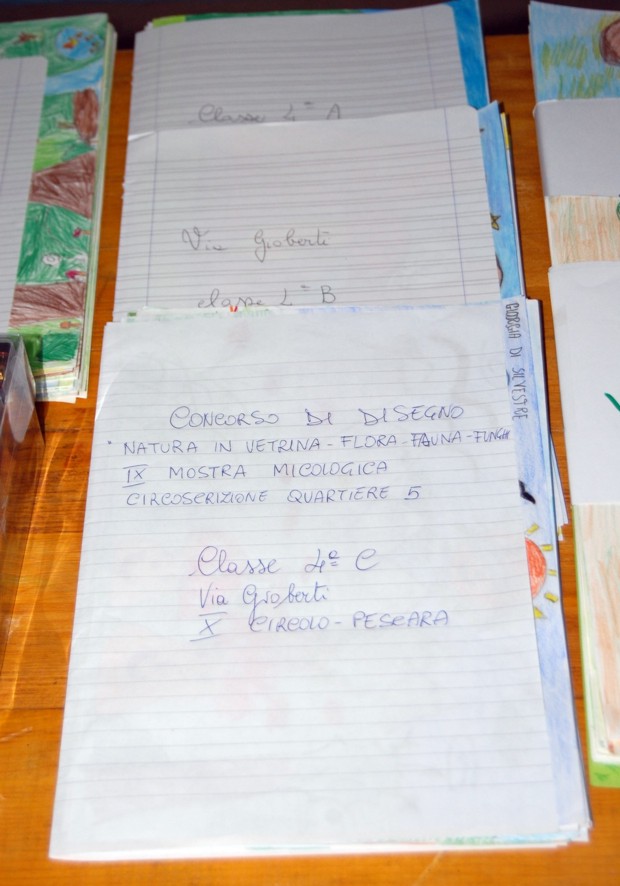 Classe 4ª A
Via Gioberti
classe 4ª B
GIORGIA DI SILVESTRE
CONCORSO DI DISEGNO
NATURA IN VETRINA - FLORA - FAUNA - FUNGHI
IX MOSTRA MICOLOGICA
CIRCOSCRIZIONE QUARTIERE 5
Classe 4ª C
Via Gioberti
X CIRCOLO - PESCARA